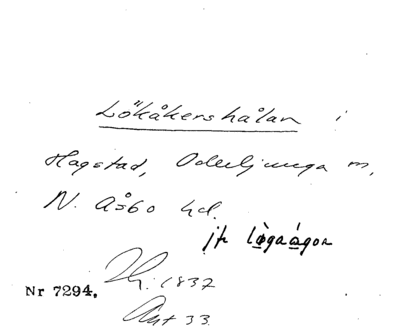 Lökåkershålan i
Hagstad, Oderljunga sn,
N. Åsbo hd.
jfr lögaågon
1837
Nr 7294.
Akt 33